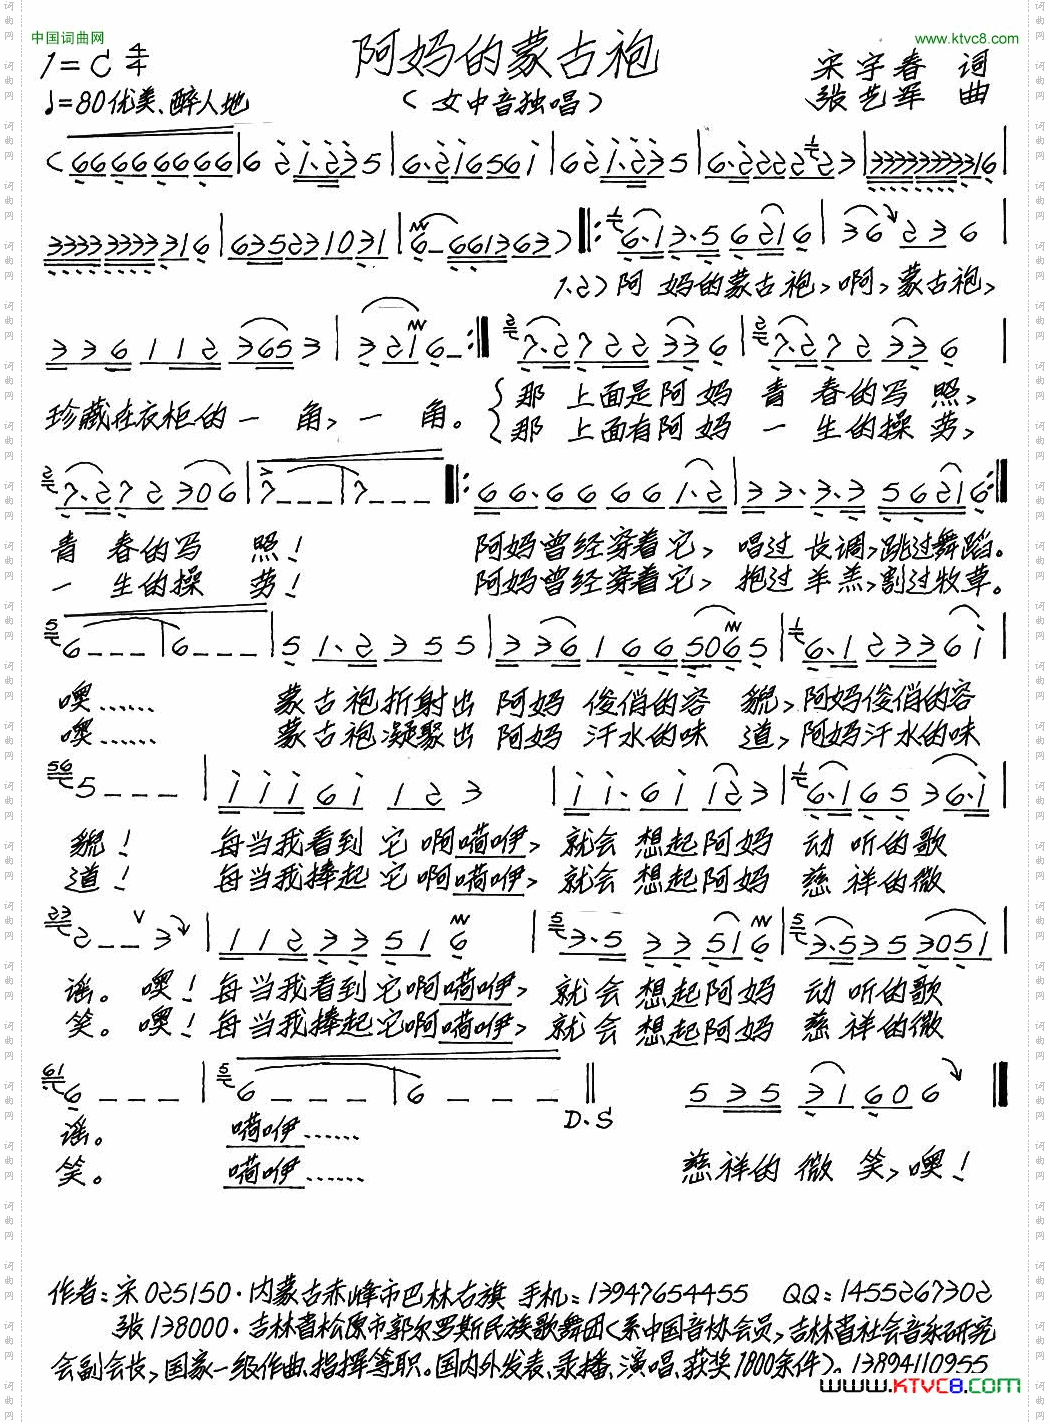 中国词曲网
www.ktvc8.com
阿妈的蒙古袍
1=C 4/4
宋宇春 词
♩=80 优美、醉人地
(女中音独唱)
张艺军 曲
1.2)阿 妈的蒙古袍,啊,蒙古袍,
珍藏在衣柜的一 角,一 角。
那 上面是阿妈 青 春的写 照,
那 上面有阿妈 一 生的操 劳,
青 春的写 照!
阿妈曾经穿着它,唱过长调,跳过舞蹈。
一 生的操 劳!
阿妈曾经穿着它,抱过羊羔,割过牧草。
噢…… 蒙古袍折射出 阿妈 俊俏的容 貌,阿妈俊俏的容
噢…… 蒙古袍凝聚出 阿妈 汗水的味 道,阿妈汗水的味
貌! 每当我看到 它 啊嗬咿,就会想起阿妈 动 听的歌
道! 每当我捧起 它 啊嗬咿,就会想起阿妈 慈 祥的微
谣。噢!每当我看到它啊嗬咿,就会想起阿妈 动 听的歌
笑。噢!每当我捧起它啊嗬咿,就会想起阿妈 慈 祥的微
D.S
谣。 嗬咿……
笑。 嗬咿…… 慈祥的微 笑,噢!
作者:宋 025150·内蒙古赤峰市巴林右旗 手机:13947654455 QQ:1455267302
张 138000·吉林省松原市郭尔罗斯民族歌舞团(系中国音协会员,吉林省社会音乐研究
会副会长,国家一级作曲、指挥等职。国内外发表、录播、演唱、获奖1800余件)。13894110955
www.KTVC8.COM